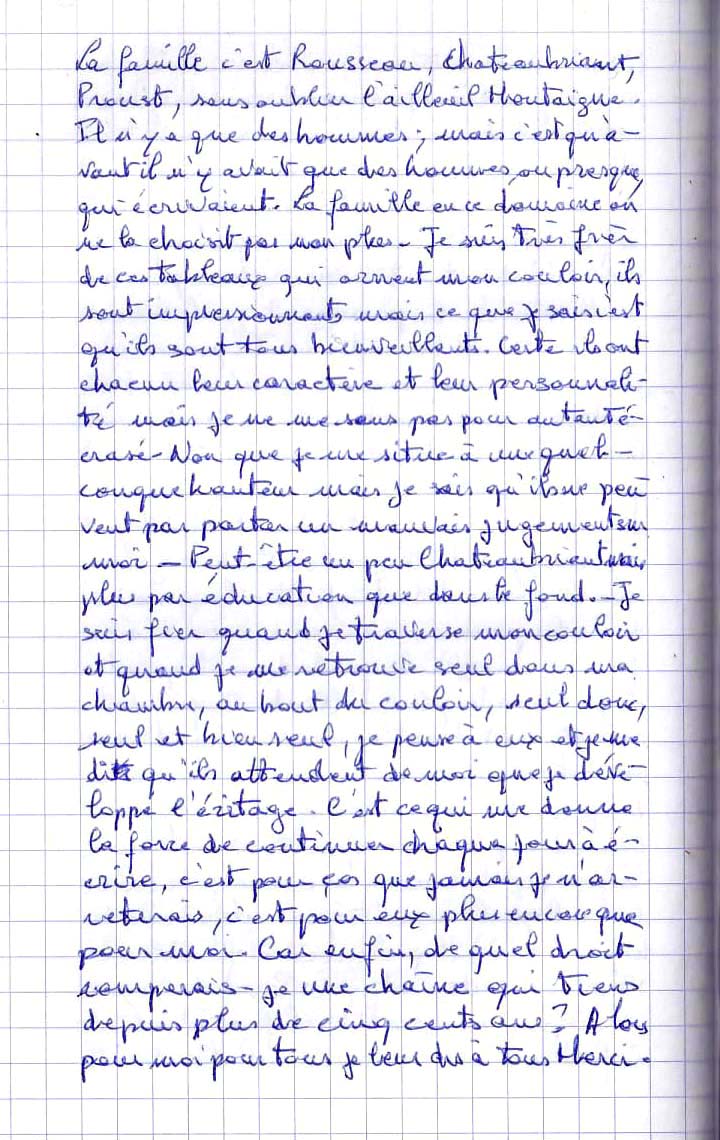 La famille c'est Rousseau, Chateaubriant,
Proust, sans oublier l'ailleuil Montaigne.
Il n'y a que des hommes ; mais c'est qu'a-
vant il n'y avait que des hommes, ou presque,
qui écrivaient. La famille en ce domaine on
ne la choisit pas non plus - Je suis très frier
de ces tableaux qui ornent mon couloir, ils
sont impressionnants mais ce que je sais c'est
qu'ils sont tous bienveillants. Certe ils ont
chacun leur caractère et leur personnali-
té mais je ne me sens pas pour autant é-
crasé - Non que je me situe à une quel-
conque hauteur mais je sais qu'ils ne peu
vent pas porter un mauvais jugement sur
moi - Peut-être un peu Chateaubriant mais
plus par éducation que dans le fond. - Je
suis fier quand je traverse mon couloir
et quand je me retrouve seul dans ma
chambre, au bout du couloir, seul donc,
seul et bien seul, je pense à eux et je me
dit qu'ils attendent de moi que je déve-
loppe l'éritage. C'est ce qui me donne
la force de continuer chaque jour à é-
crire, c'est pour ça que jamais je n'ar-
reterais, c'est pour eux plus encore que
pour moi. Car enfin, de quel droit
romperais-je une chaîne qui tiens
depuis plus de cinq cents ans ? Alors
pour moi pour tous je leur dis à tous Merci.